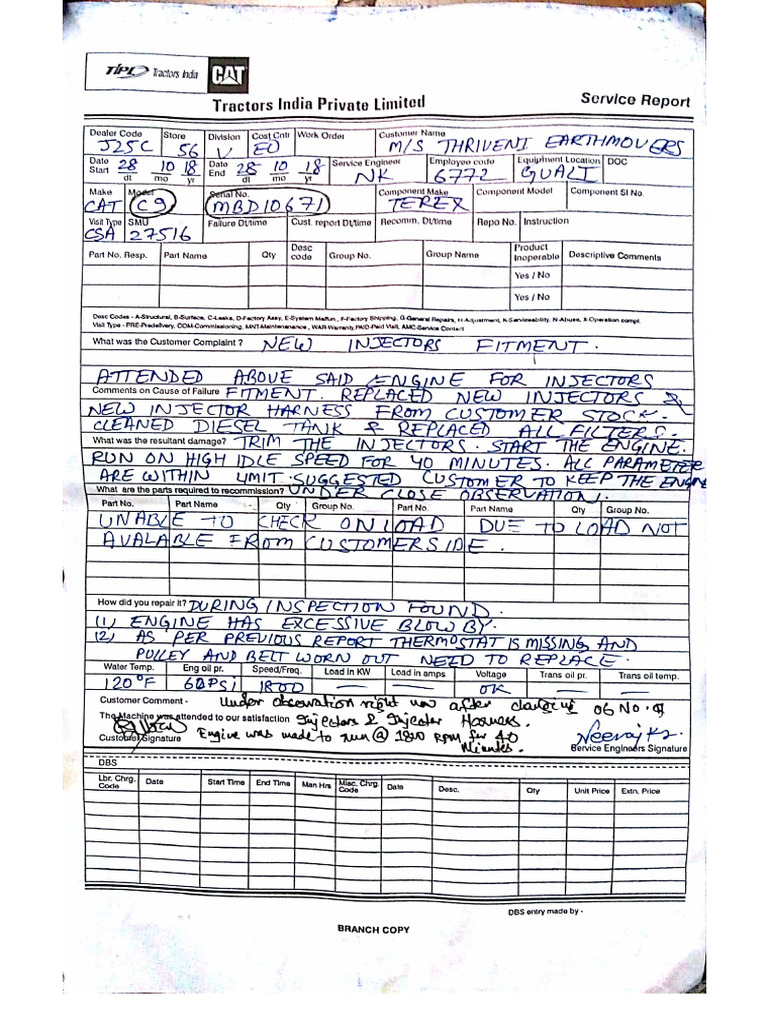 TIPL Tractors India CAT
Tractors India Private Limited Service Report
Dealer Code Store Division Cost Cntr Work Order Customer Name
J25C 56 V EO M/S THRIVENI EARTHMOVERS
Date Start 28 10 18 Date End 28 10 18 Service Engineer Employee code Equipment Location DOC
dt mo yr dt mo yr NK 6772 GUALI
Make Model Serial No. Component Make Component Model Component Sl No.
CAT C9 MBD10671 TEREX
Visit Type SMU Failure Dt/time Cust. report Dt/time Recomm. Dt/time Repo No. Instruction
CSA 27516
Part No. Resp. Part Name Qty Desc code Group No. Group Name Product Inoperable Descriptive Comments
Yes / No
Yes / No
Desc Codes - A-Structural, B-Surface, C-Leaks, D-Factory Assy, E-System Malfun., F-Factory Shipping, G-General Repairs, H-Adjustment, K-Serviceability, N-Abuse, X-Operation compl.
Visit Type - PRE-Predelivery, COM-Commissioning, MNT-Maintenanance, WAR-Warranty, PAID-Paid Visit, AMC-Service Contact
What was the Customer Complaint ? NEW INJECTORS FITMENT.
ATTENDED ABOVE SAID ENGINE FOR INJECTORS
Comments on Cause of Failure FITMENT. REPLACED NEW INJECTORS &
NEW INJECTOR HARNESS FROM CUSTOMER STOCK.
CLEANED DIESEL TANK & REPLACED ALL FILTERS.
What was the resultant damage? TRIM THE INJECTORS. START THE ENGINE.
RUN ON HIGH IDLE SPEED FOR 40 MINUTES. ALL PARAMETER
ARE WITHIN LIMIT. SUGGESTED CUSTOMER TO KEEP THE ENGINE
What are the parts required to recommission? UNDER CLOSE OBSERVATION.
Part No. Part Name Qty Group No. Part No. Part Name Qty Group No.
UNABLE TO CHECK ONLOAD DUE TO LOAD NOT
AVALABLE FROM CUSTOMER SIDE.
How did you repair it? DURING INSPECTION FOUND.
(1) ENGINE HAS EXCESSIVE BLOW BY.
(2) AS PER PREVIOUS REPORT THERMOSTAT IS MISSING AND
PULLEY AND BELT WORN OUT NEED TO REPLACE.
Water Temp. Eng oil pr. Speed/Freq. Load in KW Load in amps Voltage Trans oil pr. Trans oil temp.
120°F 60PSI 1800 — — OK — —
Customer Comment - Under observation right now after changing 06 No. of
The Machine was attended to our satisfaction Injectors & Injector Harness.
Customer Signature Engine was made to run @ 1800 rpm for 40 Minutes. Neeraj Kr.
Service Engineers Signature
DBS
Lbr. Chrg. Code Date Start Time End Time Man Hrs Misc. Chrg. Code Date Desc. Qty Unit Price Extn. Price
DBS entry made by -
BRANCH COPY